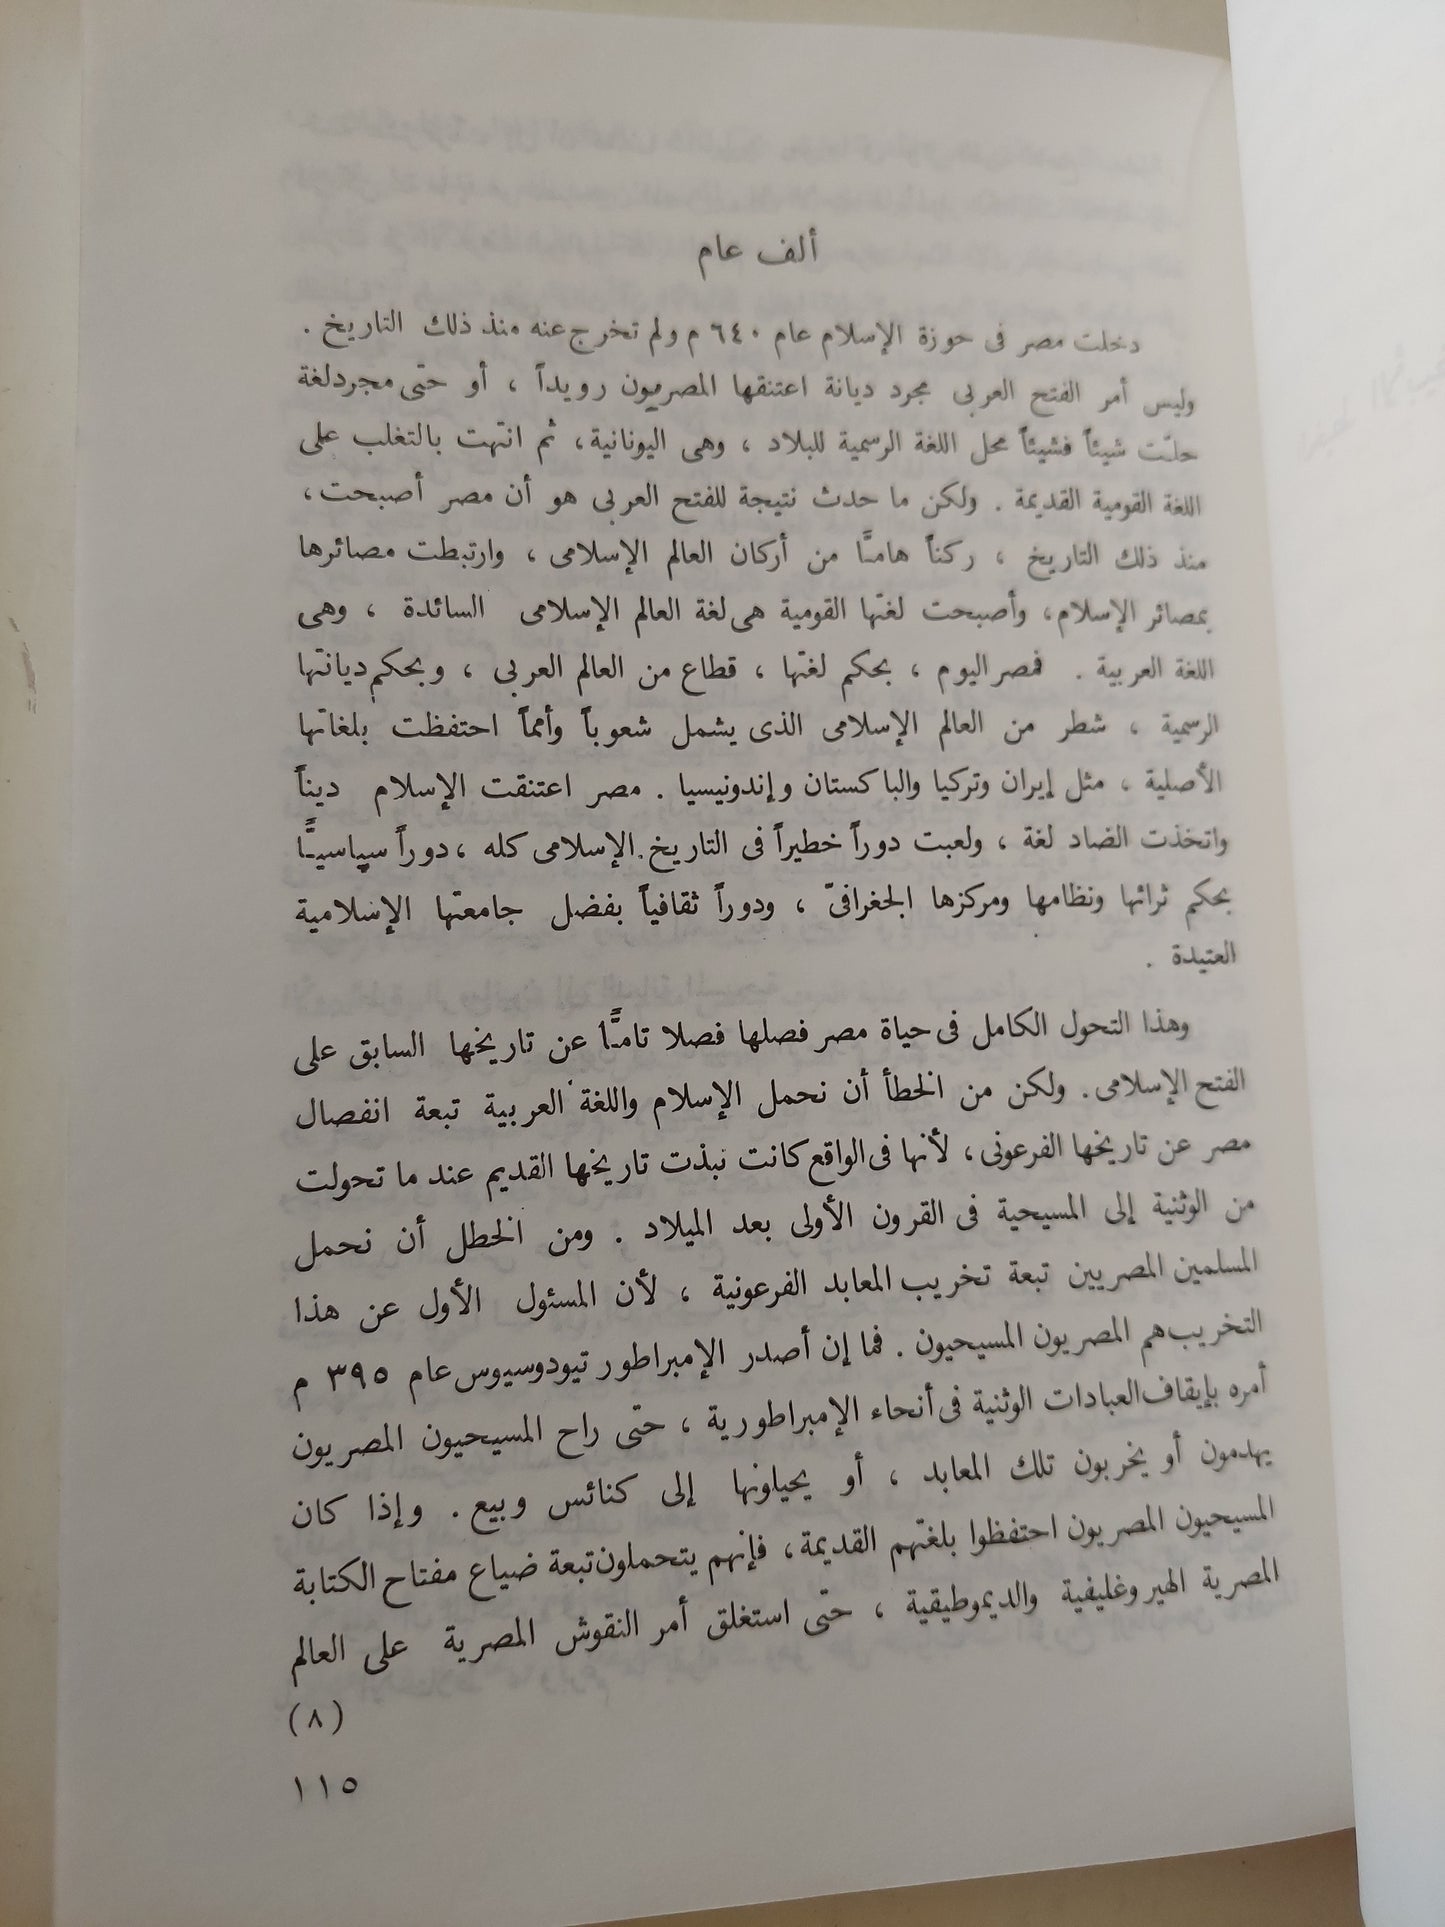 ألف عام
دخلت مصر فى حوزة الإسلام عام ٦٤٠ م ولم تخرج عنه منذ ذلك التاريخ .
وليس أمر الفتح العربى مجرد ديانة اعتنقها المصريون رويداً ، أو حتى مجرد لغة
حلـّت شيئاً فشيئاً محل اللغة الرسمية للبلاد ، وهى اليونانية ، ثم انتهت بالتغلب على
اللغة القومية القديمة . ولكن ما حدث نتيجة للفتح العربى هو أن مصر أصبحت ،
منذ ذلك التاريخ ، ركناً هامـًّا من أركان العالم الإسلامى ، وارتبطت مصائرها
بمصائر الإسلام ، وأصبحت لغتها القومية هى لغة العالم الإسلامى السائدة ، وهى
اللغة العربية . فمصر اليوم ، بحكم لغتها ، قطاع من العالم العربى ، وبحكم ديانتها
الرسمية ، شطر من العالم الإسلامى الذى يشمل شعوباً وأمماً احتفظت بلغاتها
الأصلية ، مثل إيران وتركيا والباكستان وإندونيسيا . مصر اعتنقت الإسلام ديناً
واتخذت الضاد لغة ، ولعبت دوراً خطيراً فى التاريخ الإسلامى كله ، دوراً سياسيـًّا
بحكم ثرائها ونظامها ومركزها الجغرافىّ ، ودوراً ثقافياً بفضل جامعتها الإسلامية
العتيدة .
وهذا التحول الكامل فى حياة مصر فصلها فصلا تامـًّا عن تاريخها السابق على
الفتح الإسلامى . ولكن من الخطأ أن نحمل الإسلام واللغة العربية تبعة انفصال
مصر عن تاريخها الفرعونى ، لأنها فى الواقع كانت نبذت تاريخها القديم عند ما تحولت
من الوثنية إلى المسيحية فى القرون الأولى بعد الميلاد . ومن الخطل أن نحمل
المسلمين المصريين تبعة تخريب المعابد الفرعونية ، لأن المسئول الأول عن هذا
التخريب هم المصريون المسيحيون . فما إن أصدر الإمبراطور تيودوسيوس عام ٣٩٥ م
أمره بإيقاف العبادات الوثنية فى أنحاء الإمبراطورية ، حتى راح المسيحيون المصريون
يهدمون أو يخربون تلك المعابد ، أو يحيلونها إلى كنائس وبيع . وإذا كان
المسيحيون المصريون احتفظوا بلغتهم القديمة ، فإنهم يتحملون تبعة ضياع مفتاح الكتابة
المصرية الهيروغليفية والديموطيقية ، حتى استغلق أمر النقوش المصرية على العالم
(٨)
١١٥